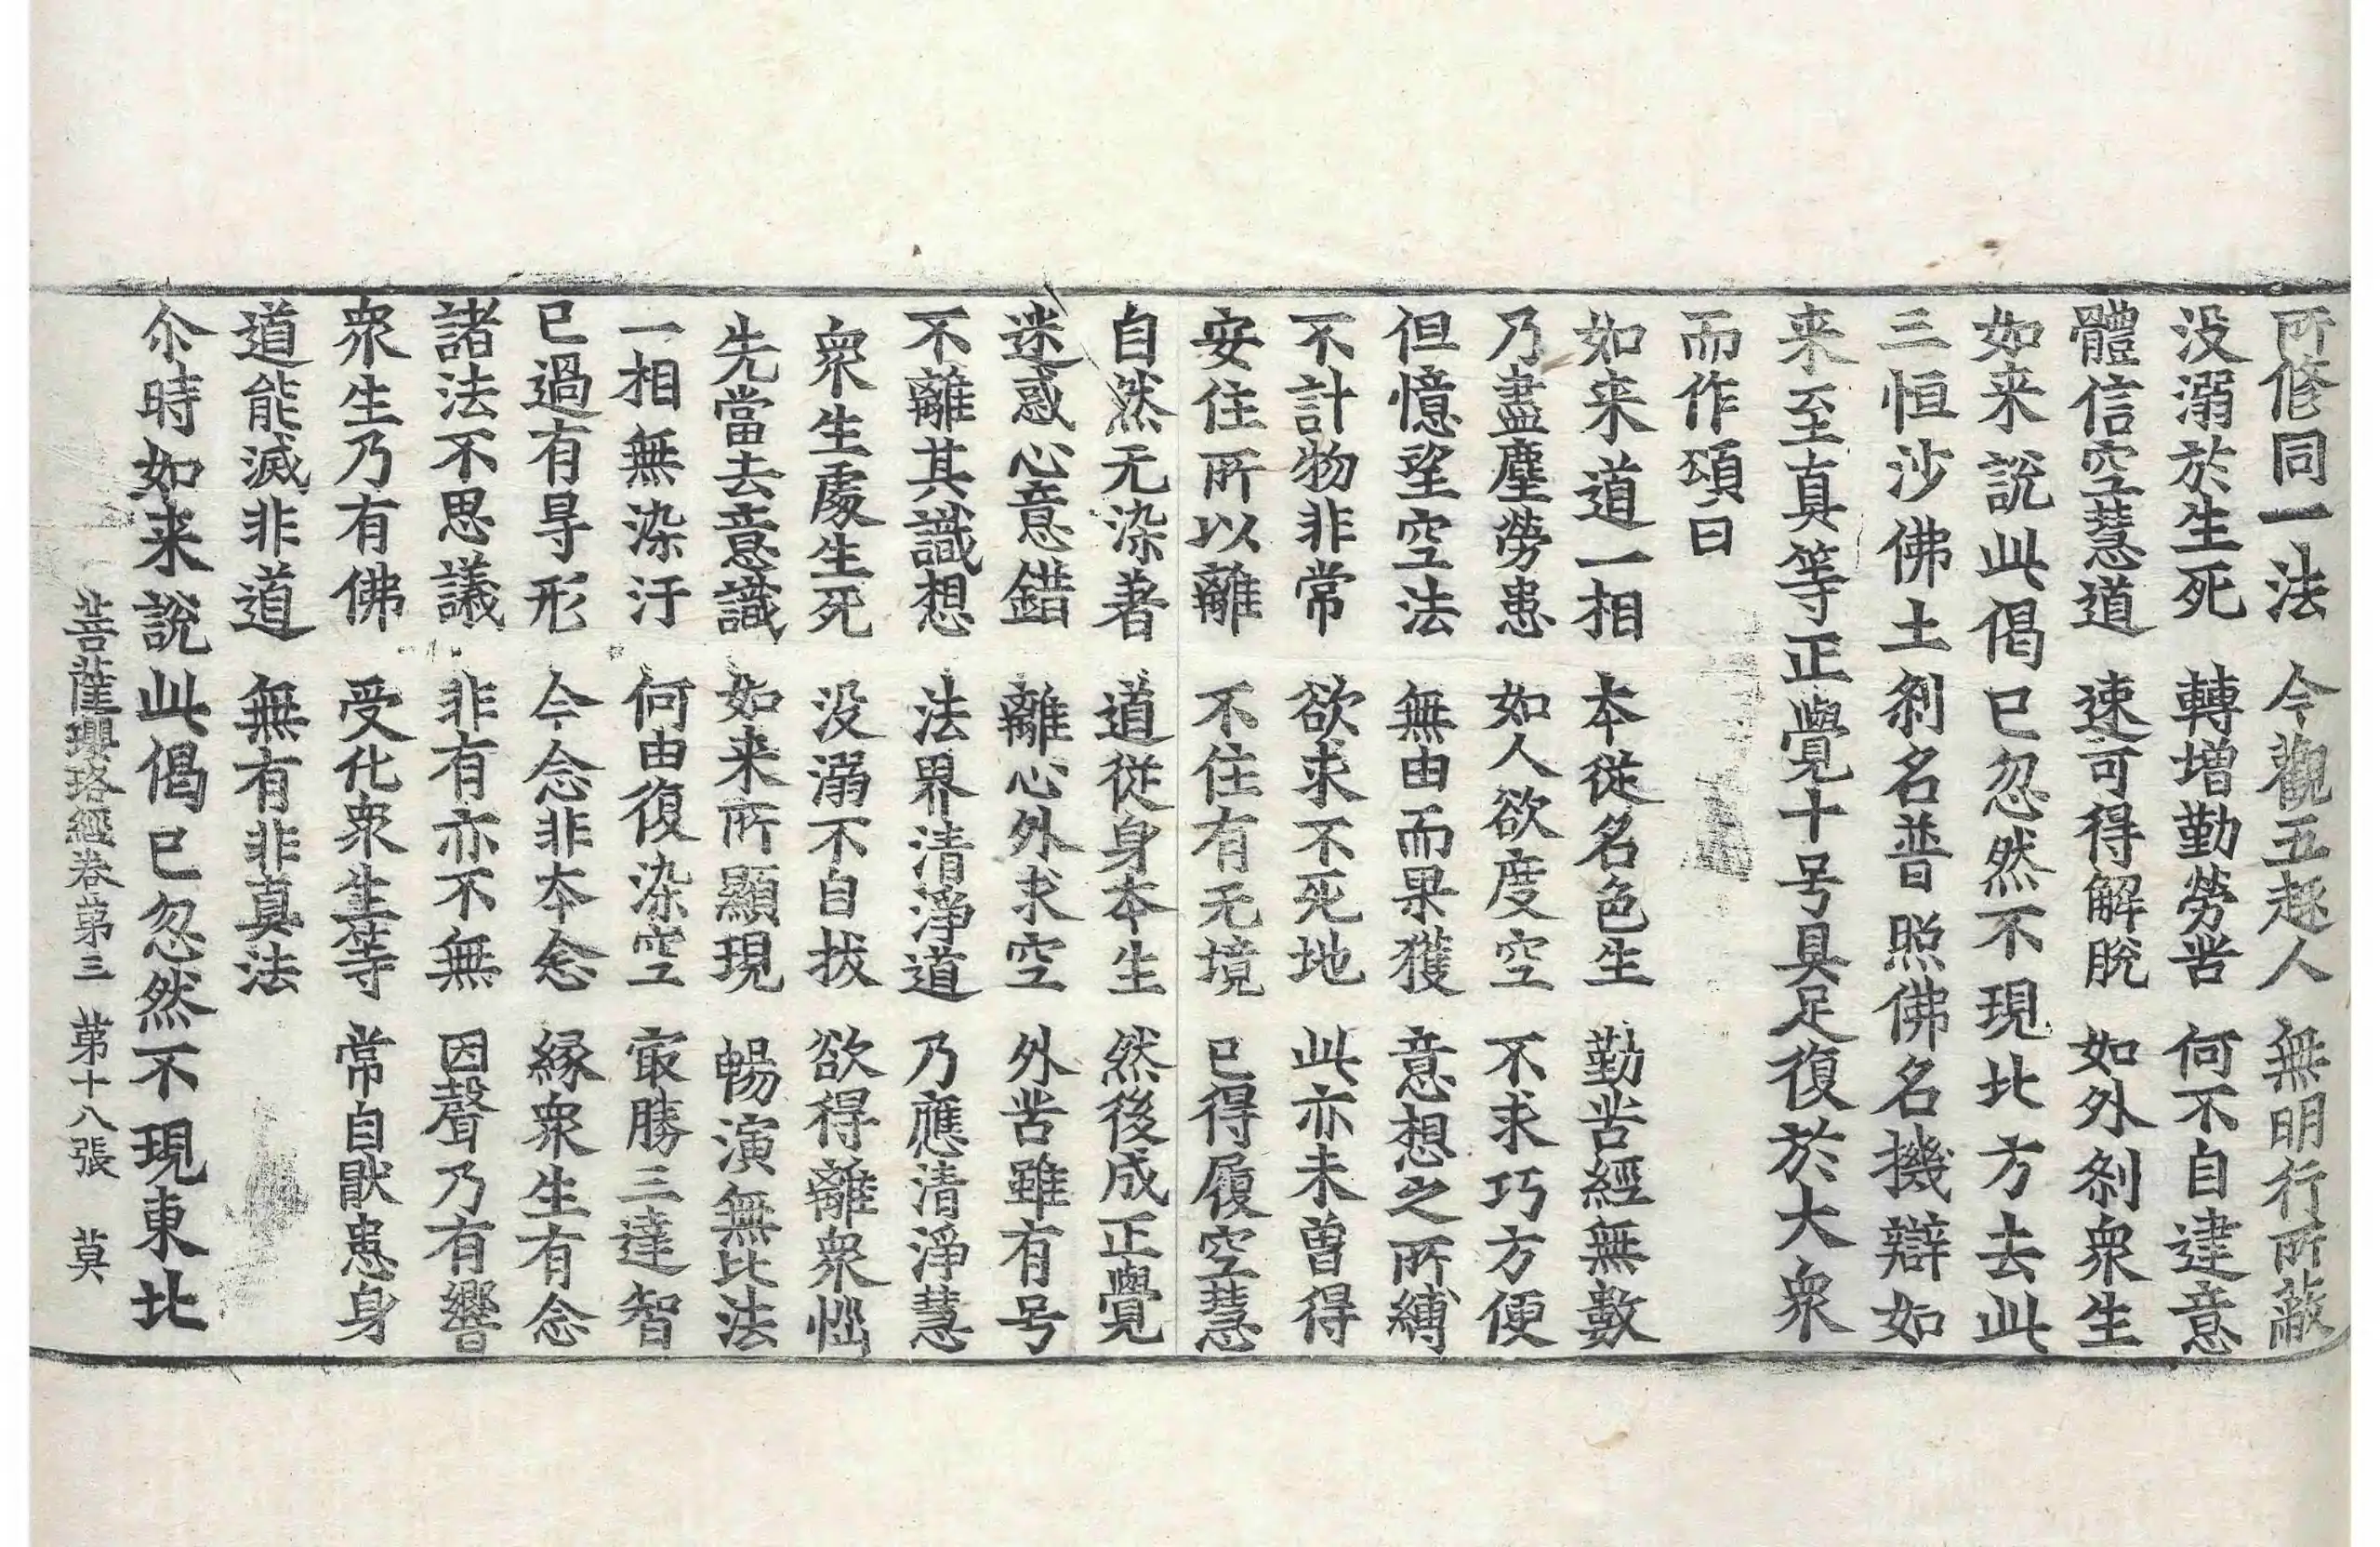 所修同一法　今觀五趣人　無明行所蔽
没溺於生死　轉增勤勞苦　何不自建意
體信空慧道　速可得解脫　如外刹衆生
如来說此偈已忽然不現北方去此
三恒沙佛土刹名普照佛名機辯如
来至真等正覺十号具足復於大衆
而作頌曰
如来道一相　本從名色生　勤苦經無數
乃盡塵勞患　如人欲度空　不求巧方便
但憶望空法　無由而果獲　意想之所縛
不計物非常　欲求不死地　此亦未曾得
安住所以離　不住有无境　已得履空慧
自然无染著　道從身本生　然後成正覺
迷惑心意錯　離心外求空　外苦雖有号
不離其識想　法界清淨道　乃應清淨慧
衆生處生死　没溺不自拔　欲得離衆惱
先當去意識　如来所顯現　暢演無比法
一相無染汙　何由復染空　㝡勝三達智
已過有㝵形　今念非本念　緣衆生有念
諸法不思議　非有亦不無　因聲乃有響
衆生乃有佛　受化衆生等　常自猒患身
道能滅非道　無有非真法
尒時如来說此偈已忽然不現東北
菩薩瓔珞經卷第三　第十八張　莫